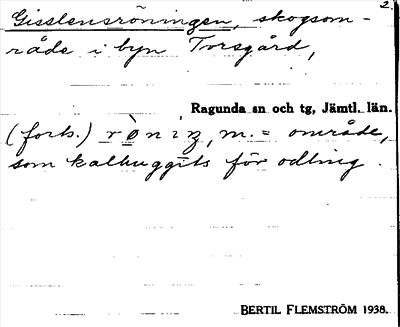 2.
Gisslensröningen, skogsom-
råde i byn Torsgård,
Ragunda sn och tg, Jämtl. län.
(forts.) rø̀niz, m. = område,
som kalhuggits för odling.
BERTIL FLEMSTRÖM 1938.